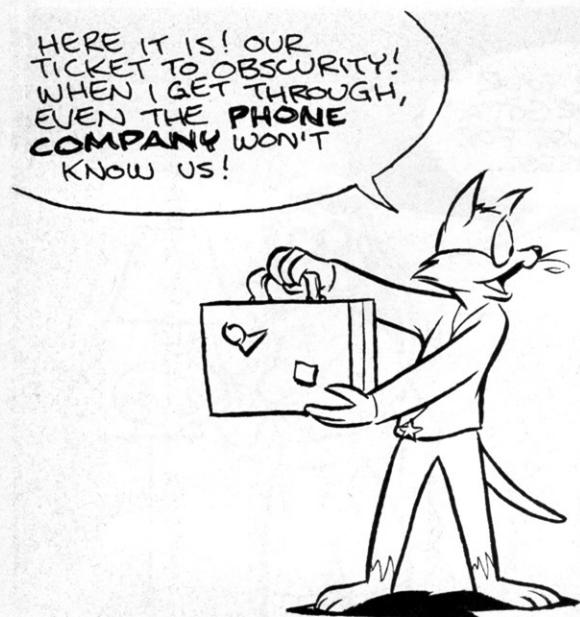 HERE IT IS! OUR
TICKET TO OBSCURITY!
WHEN I GET THROUGH,
EVEN THE PHONE
COMPANY WON'T
KNOW US!